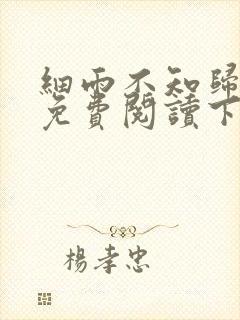 細雨不知歸
免費閱讀下
楊孝忠